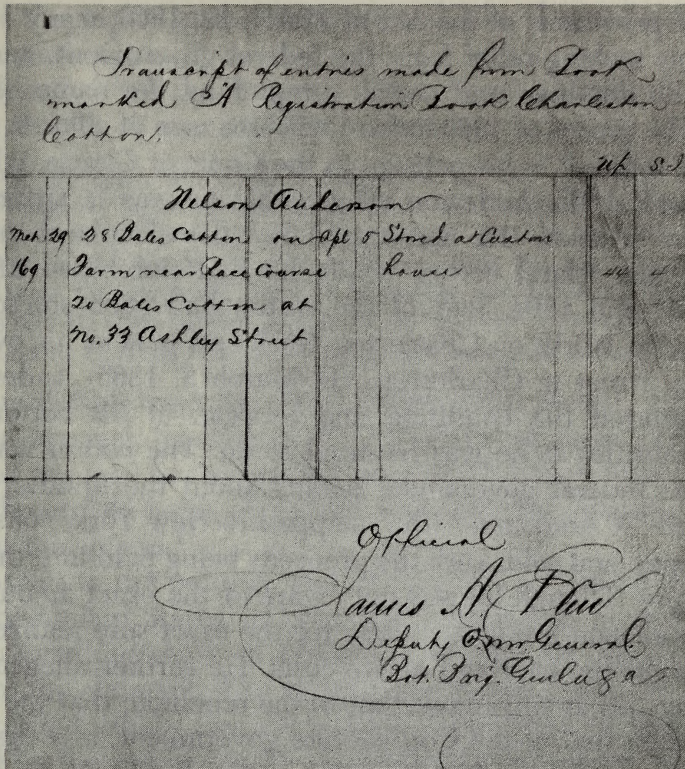 Transcript of entries made from Book
marked "A" Registration Book Charleston
Cotton.
up S.I
Nelson Anderson
Mch 29 28 Bales Cotton on Apl 5 Stored at Custom
169 Farm near Race Course house 44 4
20 Bales Cotton at
No. 33 Ashley Street
Official
James A.
Deputy Qmr General.
Bvt. Brig. Genl U S A